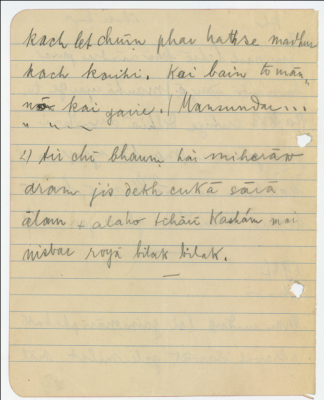 kach let chun phar hathse madhur
kach kouhi. Kai bain to man
kai gaire. / Mansundar...
" " "
2) Air chū bhaum hai miherāv
dram jis dekh cukā sārā
ālam + alaho tchāu Kashām mai
nisbac royā bilak bilak.